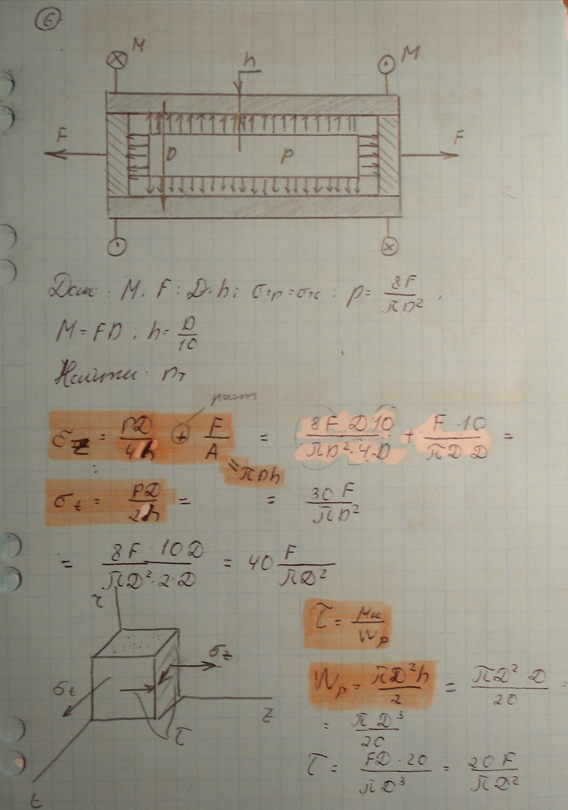 6
M
M
h
F
F
D
p
Дано: M, F, D, h; σтр = σтс; p = 8F/πD²;
M = FD, h = D/10
Найти: nт
раст
σz = pD/4h + F/A = 8F·D·10/πD²·4D + F·10/πD·D =
= πDh
σt = pD/2h =
= 30F/πD²
= 8F·10D/πD²·2·D = 40 F/πD²
τ = Mк/Wp
σt
σz
τ
z
t
Wp = πD²h/2 = πD²·D/20 =
= πD³/20
τ = FD·20/πD³ = 20F/πD²